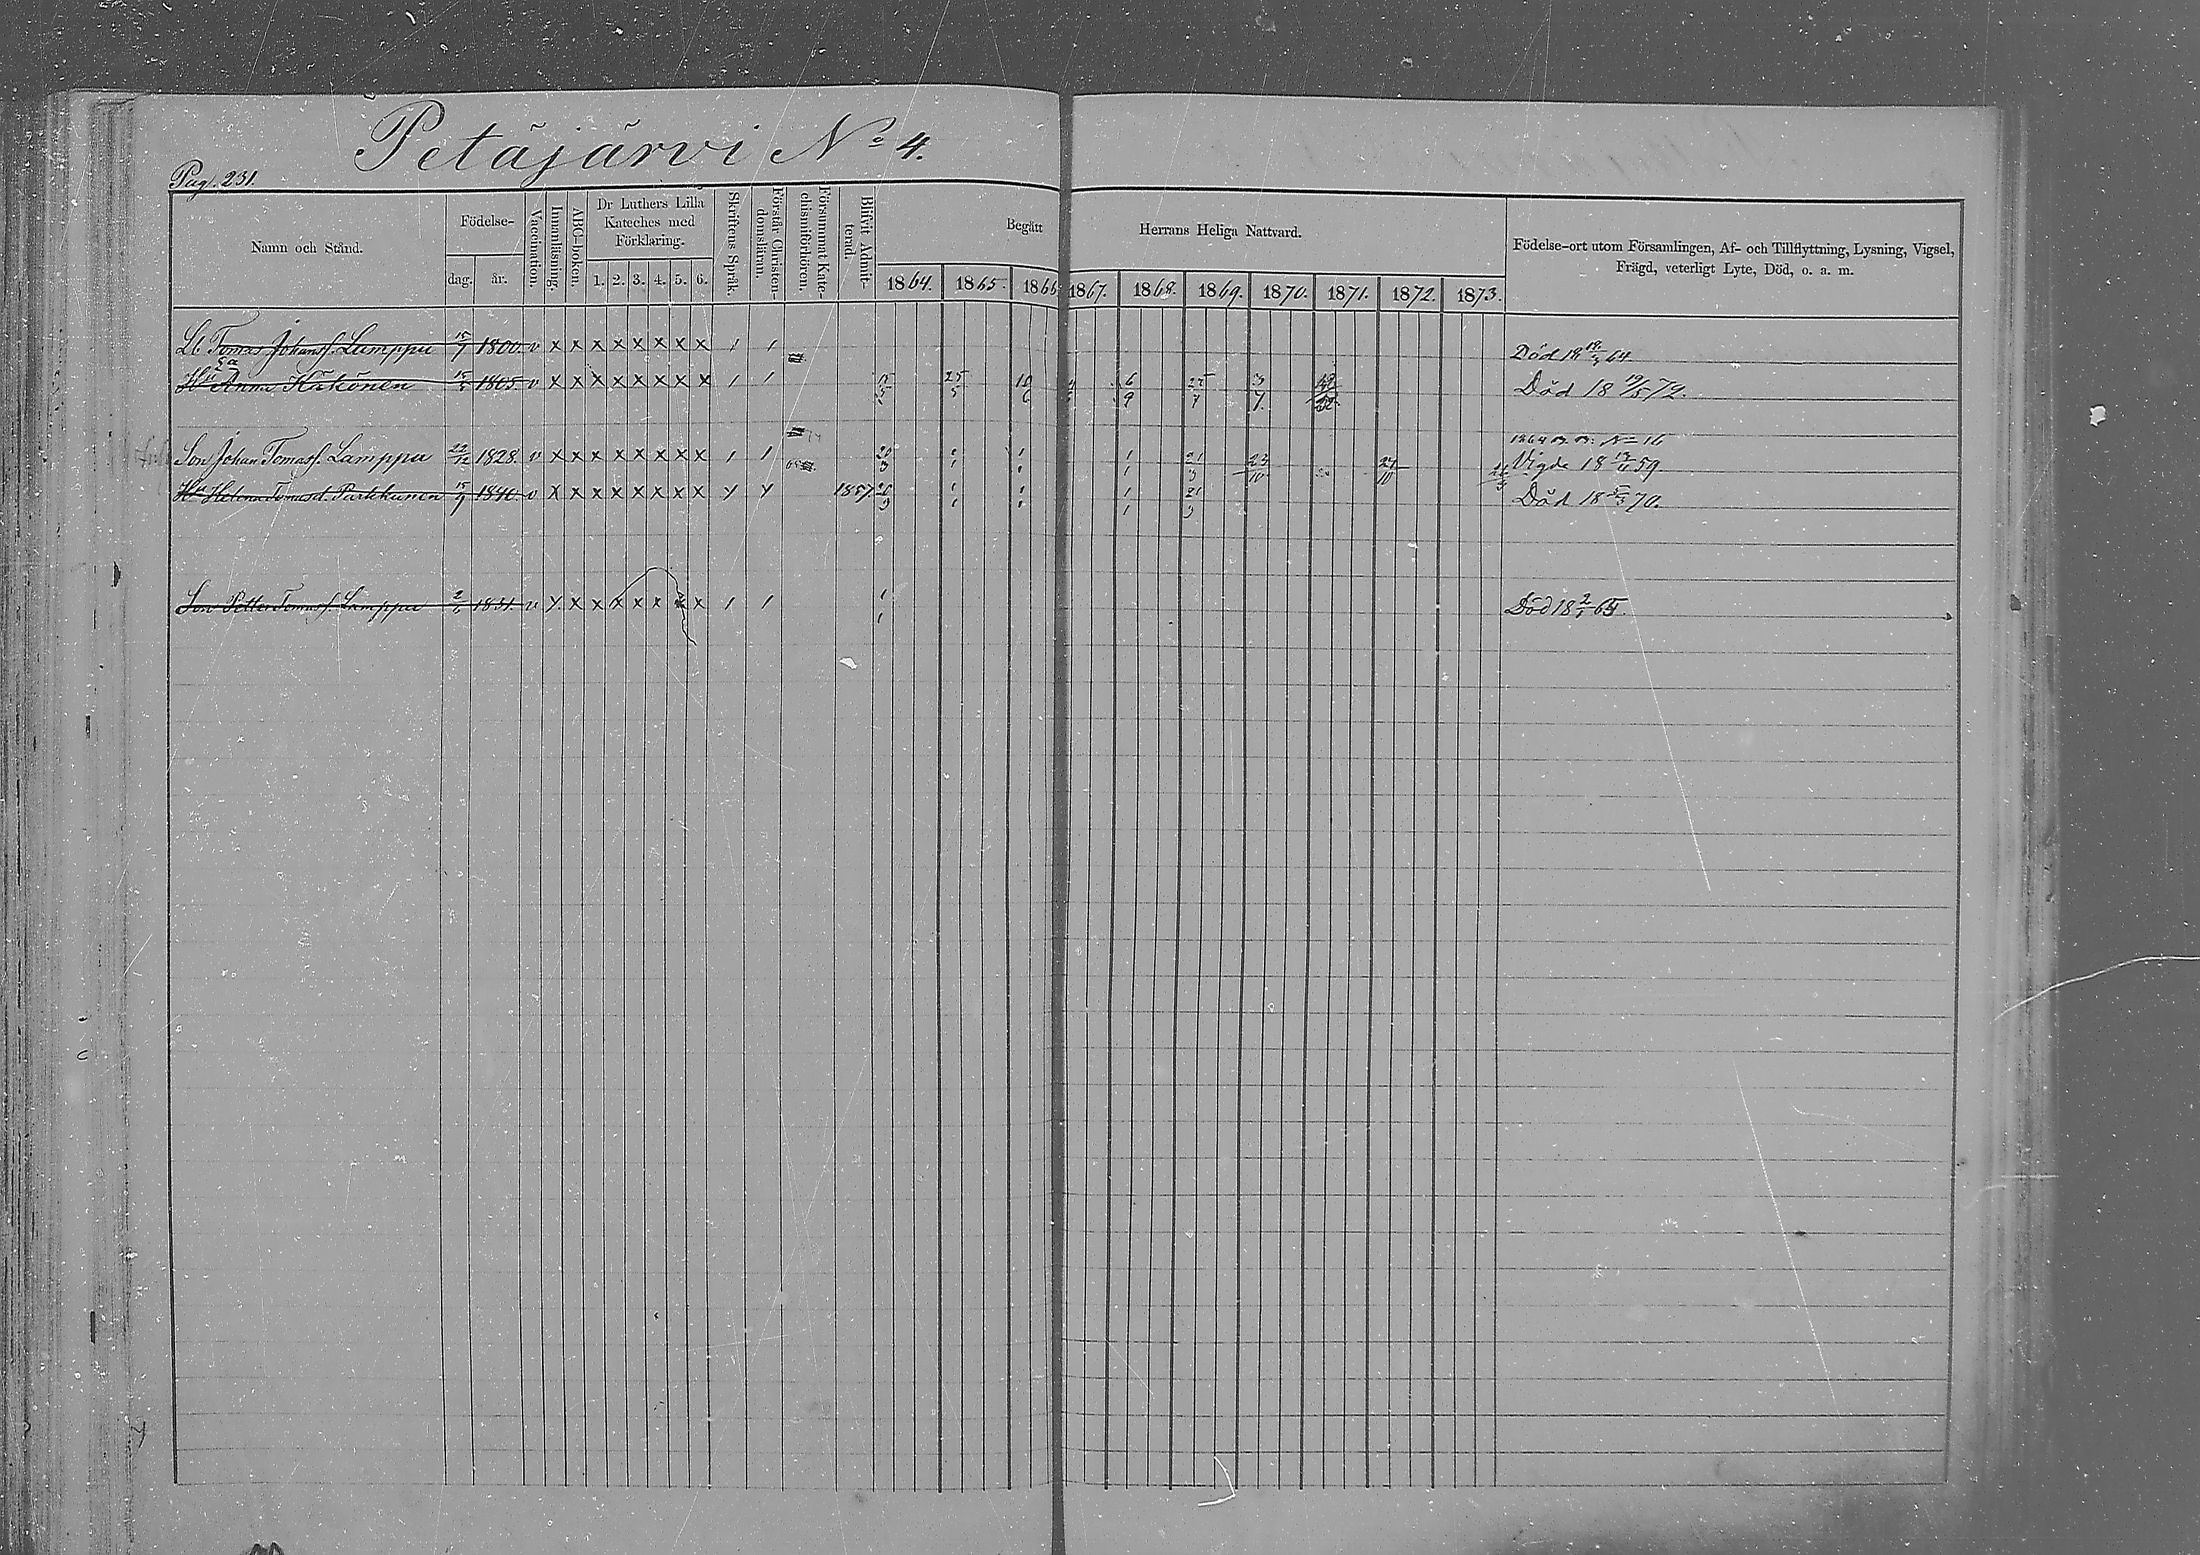 Petäjärvi No 4.
Pag. 231.
Namn och Stånd.
Födelse-
dag.
år.
Vaccination.
Innanläsning.
ABC-boken.
Dr Luthers Lilla
Kateches med
Förklaring.
1. 2. 3. 4. 5. 6.
Skriftens Språk.
Förstår Christen-
domsläran.
Försummat Kate-
chismiförhören.
Blifvit Admit-
terad.
Begått Herrans Heliga Nattvard.
1864. 1865. 1866 1867. 1868. 1869. 1870. 1871. 1872. 1873.
Födelse-ort utom Församlingen, Af- och Tillflyttning, Lysning, Vigsel,
Frägd, veterligt Lyte, Död, o. a. m.
Lb Tomas Johansf. Lamppu 15/7 1800. v x x x x x x x x 1 1 Död 18 64.
Ea
Hu Anna Käkönen 1805 v x x x x x x x x 1 1 25/5 6/9 3/7 Död 18 19/5 72.
1864 No 16
Son Johan Tomasf. Lamppu 22/12 1828. v x x x x x x x x 1 1 20/3 1/1 1/1 1/1 21/3 23/10 27/10 Vigde 18 59
Hu Helena Tomasd. Partthunen 15/9 1840. v x x x x x x x x y y 1857. 1/1 1/1 1/1 21/3 Död 18 70.
Son Petter Tomasf. Lamppu 1831. v y x x x x x x x 1 1 1/1 Död 18 2/1 65.